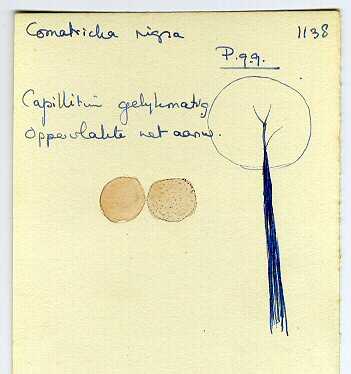 Comatricha nigra 1138
P. 99.
Capillitium gelijkmatig
Oppervlakte net aanw.